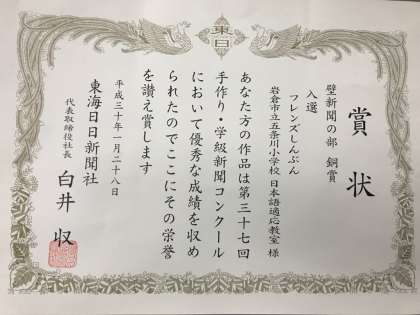 東日
賞状
壁新聞の部 銅賞
入選
フレンズしんぶん
岩倉市立五条川小学校 日本語適応教室 様
あなた方の作品は第三十七回
手作り・学級新聞コンクール
において優秀な成績を収め
られたのでここにその栄誉
を讃え賞します
平成三十年一月二十八日
東海日日新聞社
代表取締役社長 白井 収